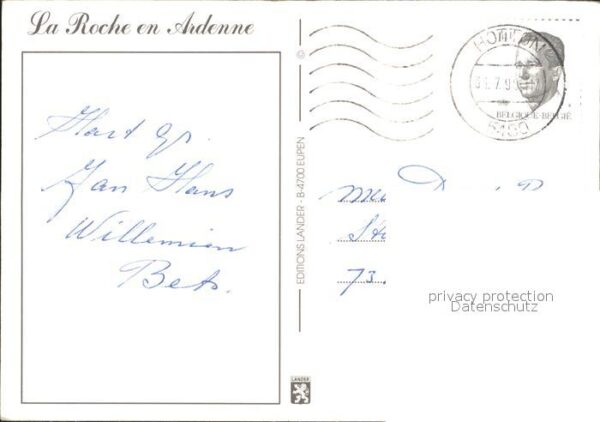 La Roche en Ardenne
Hart gr.
Jan Hans
Willemien
Bets.
EDITIONS LANDER - B-4700 EUPEN
LANDER
BELGIQUE-BELGIË
73.
privacy protection
Datenschutz